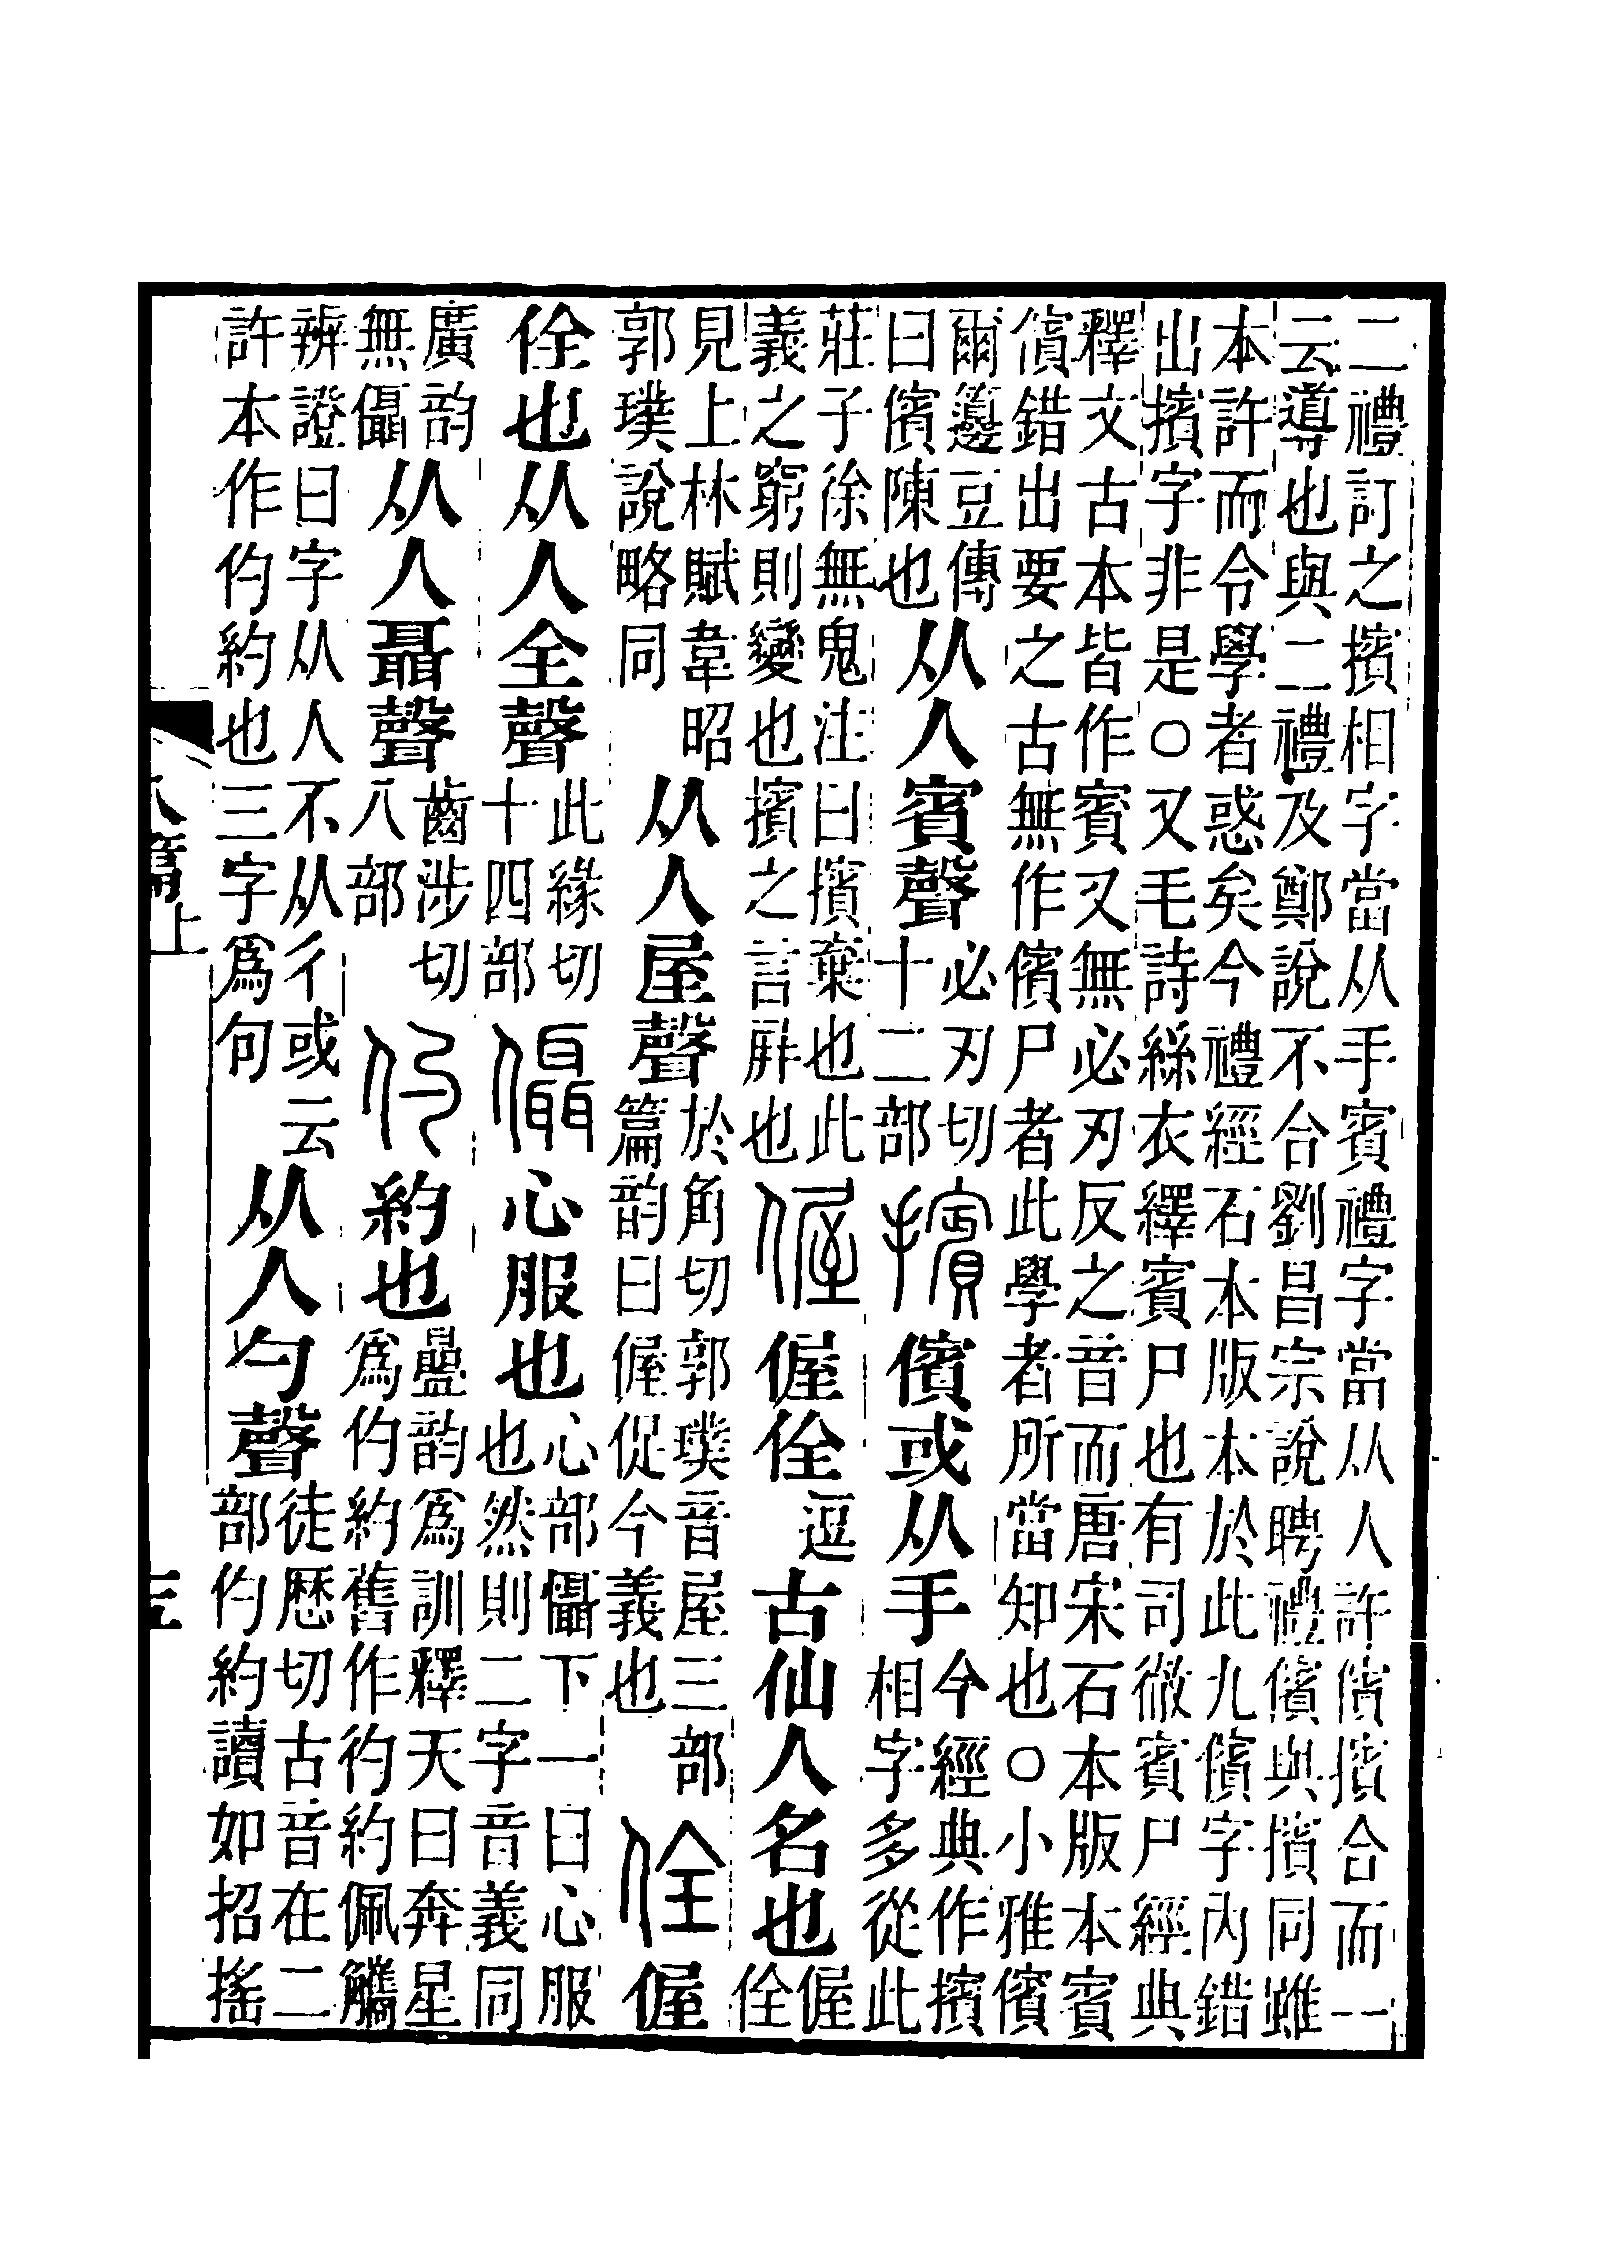 二禮訂之擯相字當从手賓禮字當从人許儐擯合而一
云導也與二禮及鄭說不合劉昌宗說聘禮儐與擯同雖
本許而令學者惑矣今禮經石本版本於此九儐字內錯
出擯字非是○又毛詩絲衣繹賓尸也有司徹賓尸經典
釋文古本皆作賓又無必刃反之音而唐宋石本版本賓
儐錯出要之古無作儐尸者此學者所當知也○小雅儐
爾籩豆傳曰儐陳也从人賓聲必刃切十二部擯儐或从手今經典作擯相字多從此
莊子徐無鬼注曰擯棄也此義之窮則變也擯之言屛也偓偓佺逗古仙人名也偓佺
見上林賦韋昭郭璞說略同从人屋聲於角切郭璞音屋三部篇韵曰偓促今義也佺偓
佺也从人全聲此緣切十四部㒤心服也心部懾下一曰心服也然則二字音義同
廣韵無㒤从人聶聲齒涉切八部仢約也疊韵爲訓釋天曰奔星爲仢約舊作彴約佩觿
辨證曰字从人不从彳或云許本作仢約也三字爲句从人勺聲徒歷切古音在二部仢約讀如招搖
八篇上